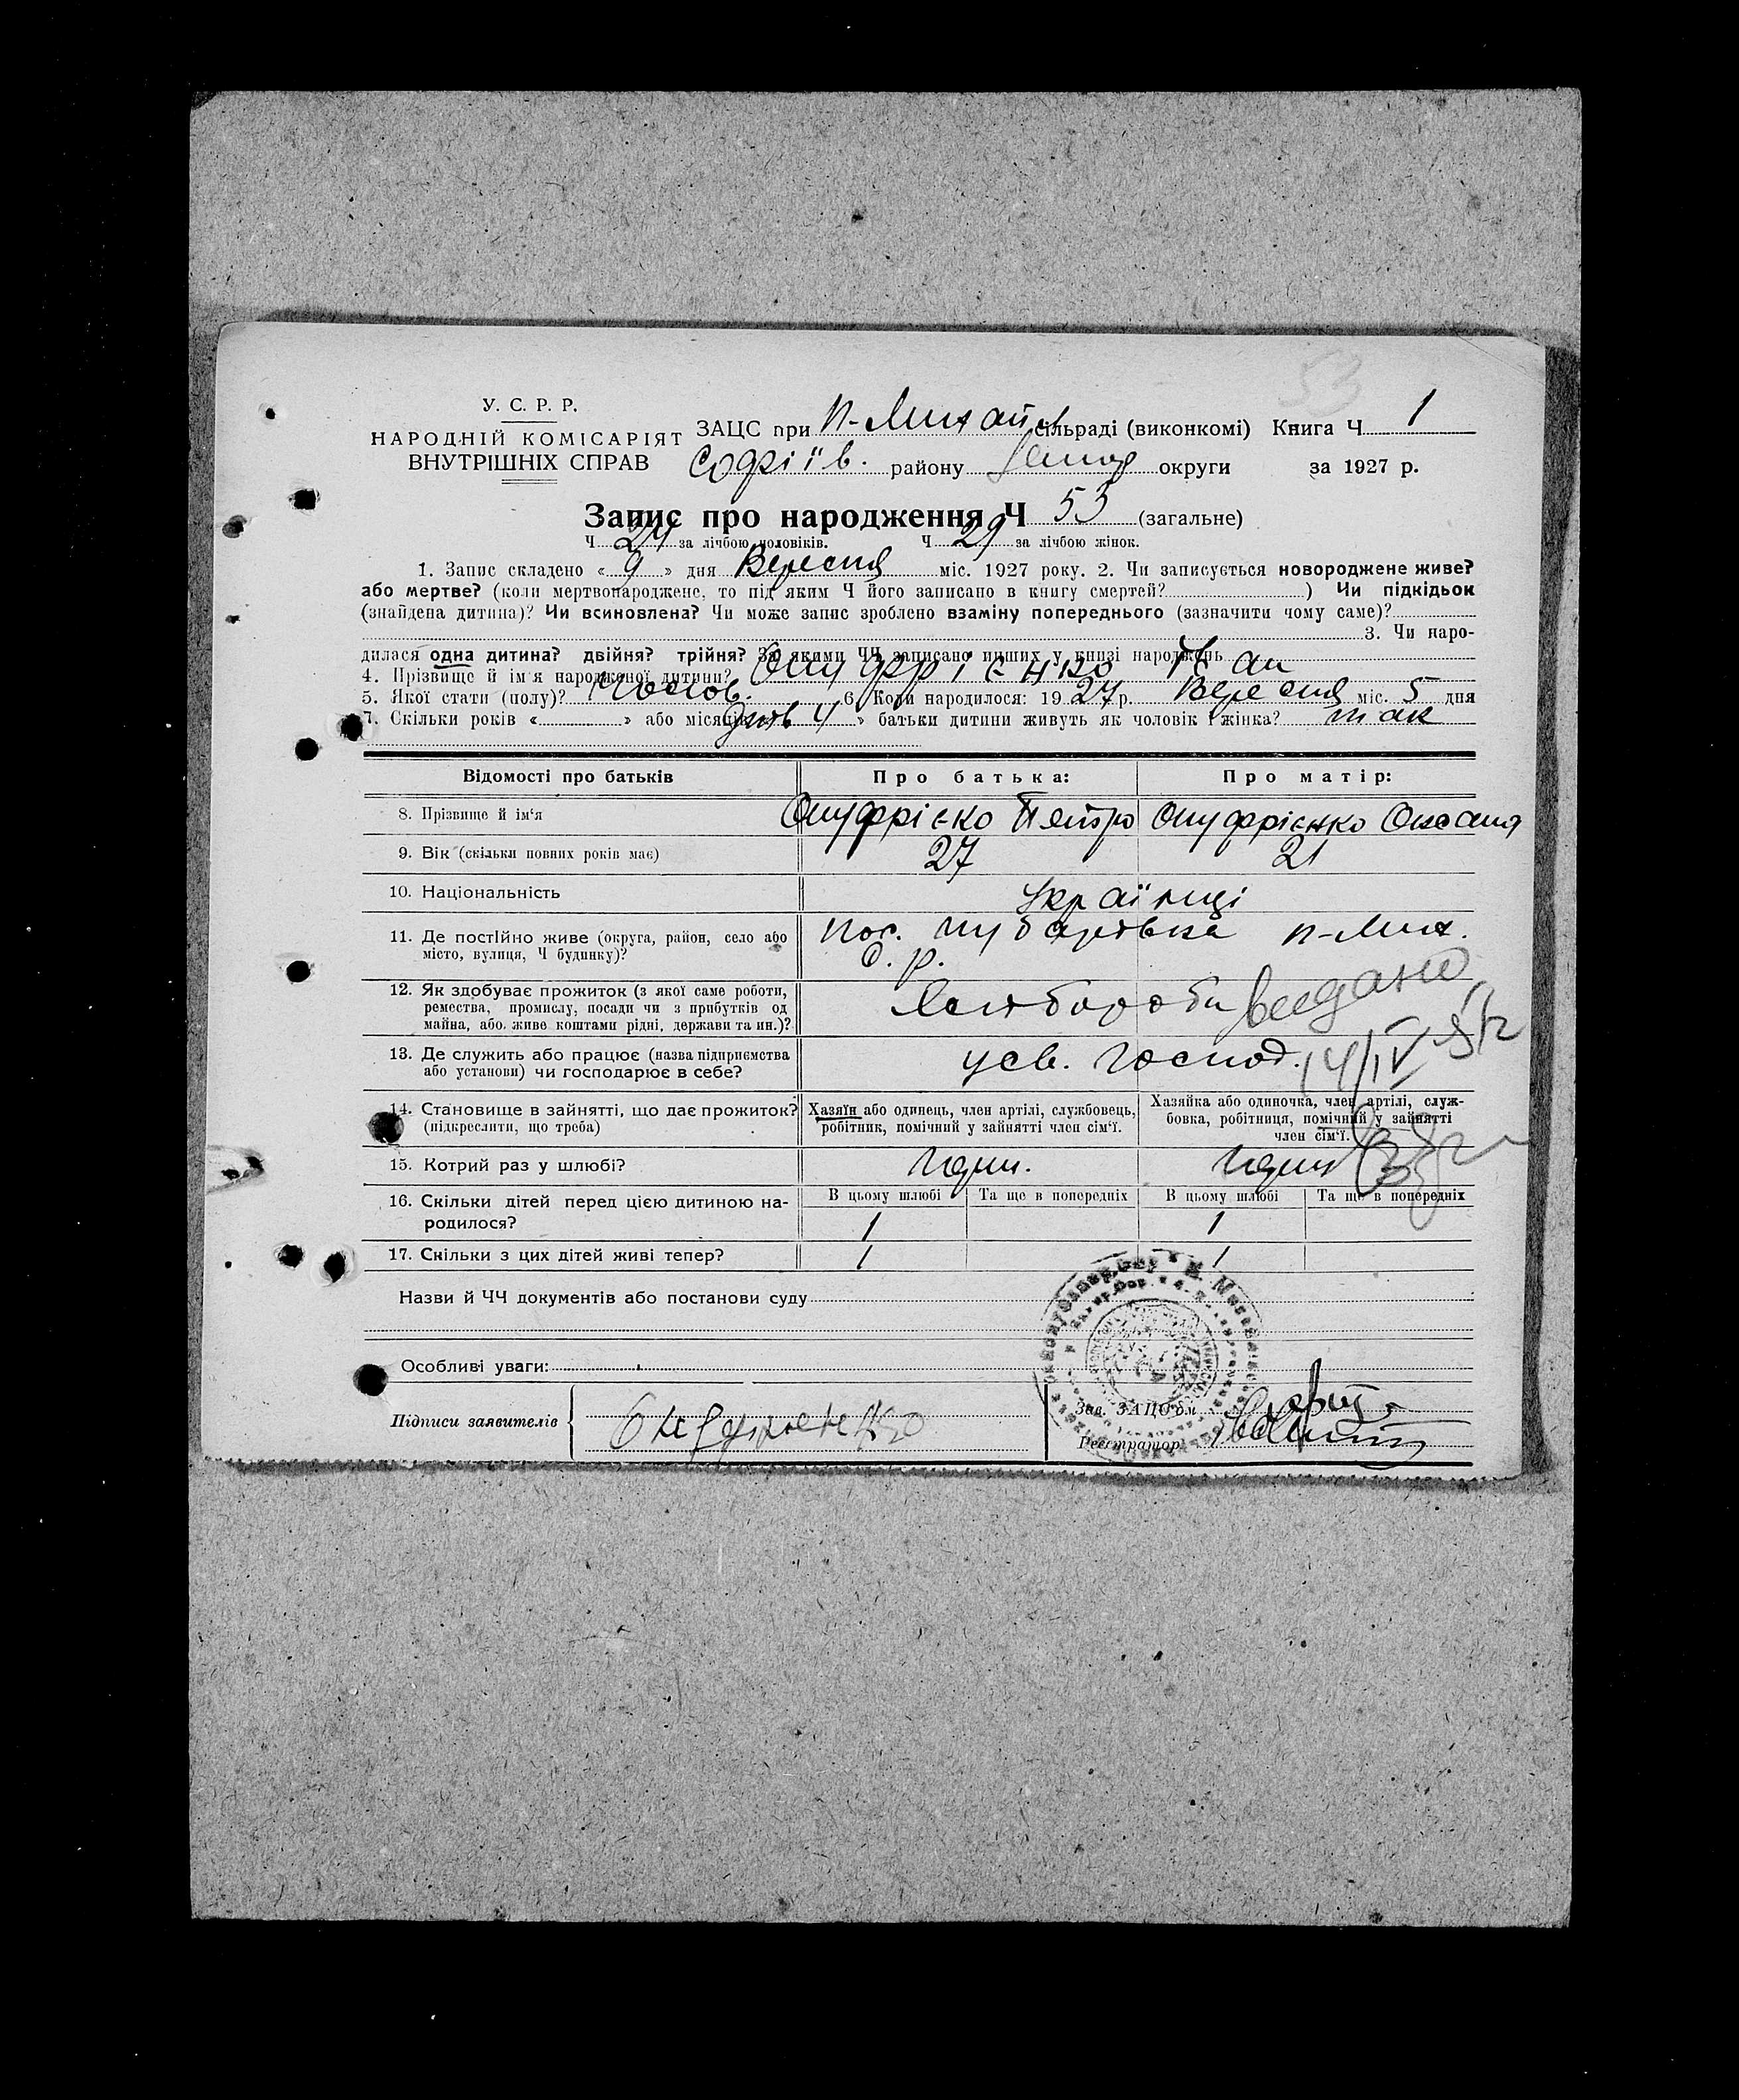 У. С. Р. Р.
НАРОДНІЙ КОМІСАРІЯТ
ВНУТРІШНІХ СПРАВ
53
ЗАЦС при П-Михайл сільраді (виконкомі) Книга Ч 1
Софіїв. району округи за 1927 р.
Запис про народження Ч 53 (загальне)
Ч 24 за лічбою чоловіків. Ч 29 за лічбою жінок.
1. Запис складено « 9 » дня Вересня міс. 1927 року. 2. Чи записується новороджене живе?
або мертве? (коли мертвонароджене, то під яким Ч його записано в книгу смертей? ) Чи підкідьок
(знайдена дитина)? Чи всиновлена? Чи може запис зроблено взаміну попереднього (зазначити чому саме)?
3. Чи наро-
дилася одна дитина? двійня? трійня? За якими ЧЧ записано инших у книзі народжень
4. Прізвище й ім'я народженої дитини? Онуфрієнко
5. Якої стати (полу)? чолов. 6. Коли народилося: 19 27 р. Вересня міс. 5 дня
7. Скільки років « » або місяців 4 » батьки дитини живуть як чоловік і жінка? так
Відомості про батьків Про батька: Про матір:
8. Прізвище й ім'я Онуфрієко Петро Онуфрієнко Оксана
9. Вік (скільки повних років має) 27 21
10. Національність Українці
11. Де постійно живе (округа, район, село або
місто, вулиця, Ч будинку)?
пос. п-Мих.
с. р.
12. Як здобуває прожиток (з якої саме роботи,
ремества, промислу, посади чи з прибутків од
майна, або живе коштами рідні, держави та ин.)?
Хлібороби
видано
13. Де служить або працює (назва підприємства
або установи) чи господарює в себе?
у св. господ.
14/IV
14. Становище в зайнятті, що дає прожиток?
(підкреслити, що треба)
Хазяїн або одинець, член артілі, службовець,
робітник, помічний у зайнятті член сім'ї.
Хазяйка або одиночка, член артілі, служ-
бовка, робітниця, помічний у зайнятті
член сім'ї.
15. Котрий раз у шлюбі?
16. Скільки дітей перед цією дитиною на-
родилося?
В цьому шлюбі Та ще в попередніх В цьому шлюбі Та ще в попередніх
1 1
17. Скільки з цих дітей живі тепер? 1 1
Назви й ЧЧ документів або постанови суду
Особливі уваги:
Підписи заявителів
Зав. ЗАЦС'ом
Реєстратор